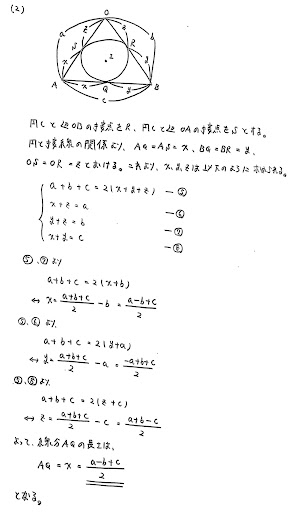 (2)
O
a
z
z
b
S
R
x
I
y
A
x
Q
y
B
c
円Cと辺OBの接点をR、円Cと辺OAの接点をSとする。
円と接線の関係より、AQ=AS=x、BQ=BR=y、
OS=OR=zとおける。これより、x,y,zは以下のように求められる。
a+b+c=2(x+y+z) ―⑤
x+z=a ―⑥
y+z=b ―⑦
x+y=c ―⑧
⑤、⑦より
a+b+c=2(x+b)
↔ x=a+b+c/2-b=a-b+c/2
⑤、⑥より
a+b+c=2(y+a)
↔ y=a+b+c/2-a=-a+b+c/2
⑤、⑧より
a+b+c=2(z+c)
↔ z=a+b+c/2-c=a+b-c/2
よって、線分AQの長さは、
AQ=x=a-b+c/2
となる。